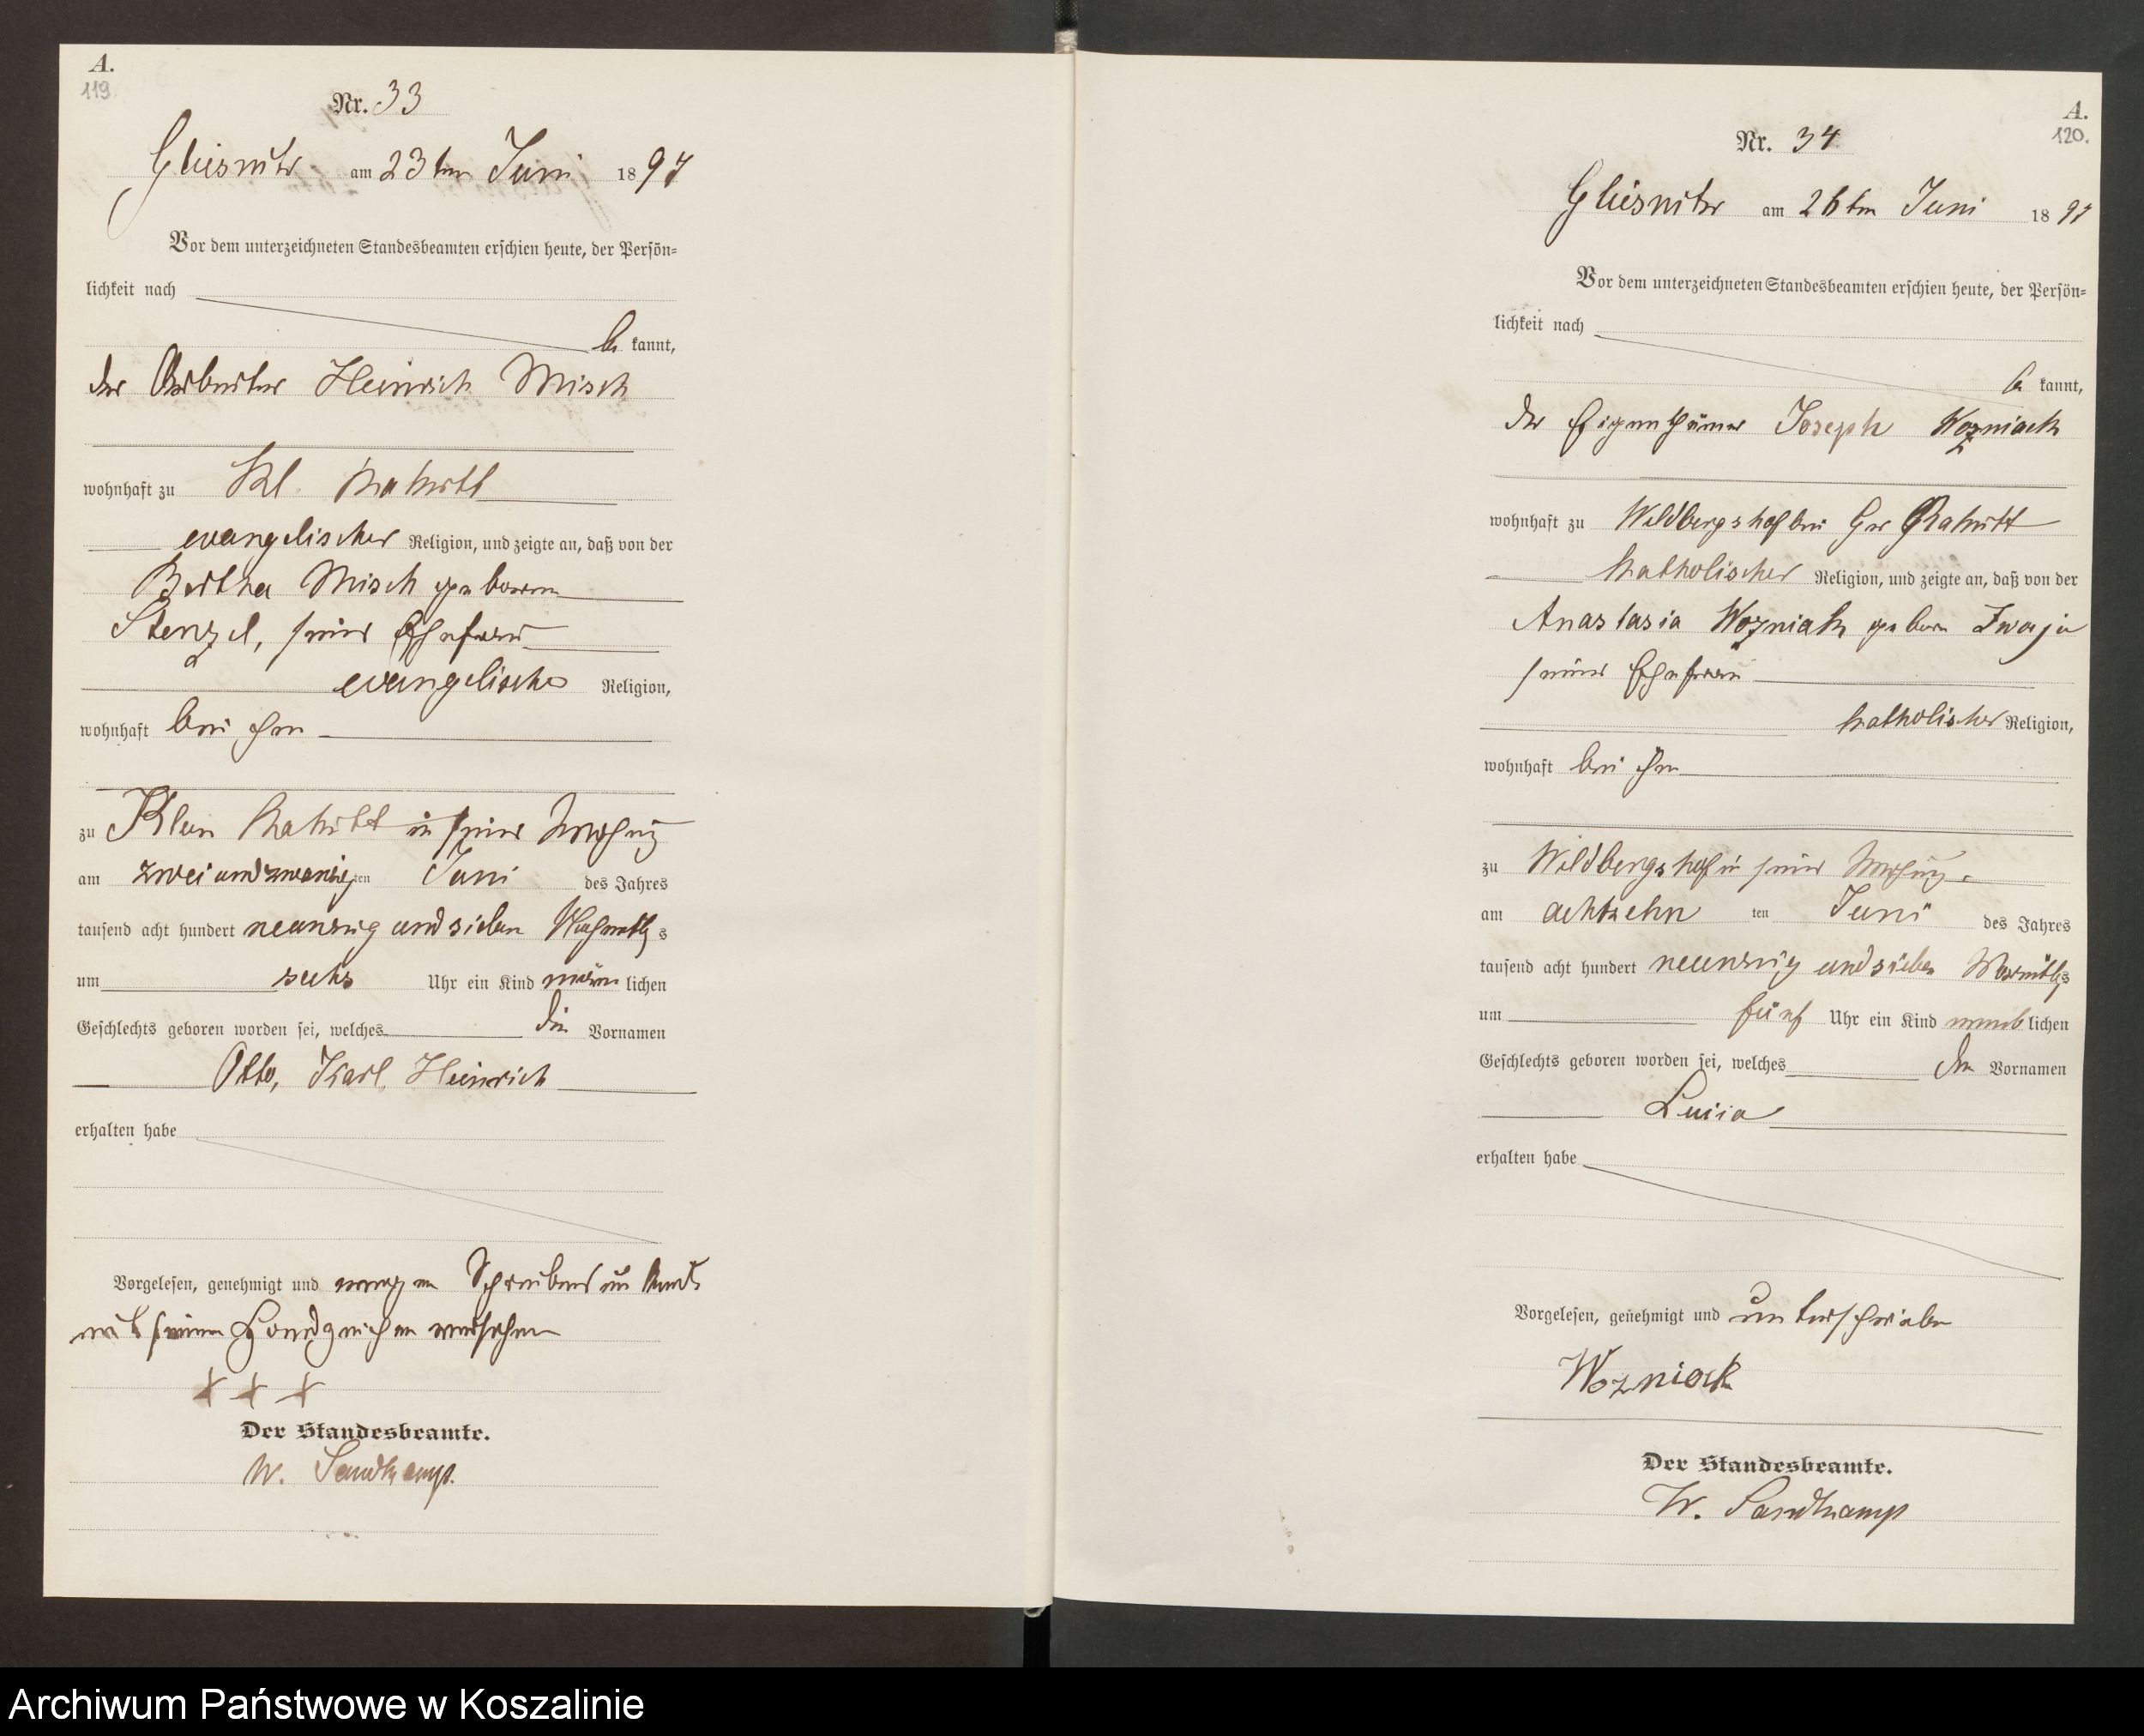 A.
119
Nr. 33
Gliesnitz am 23ten Juni 1897
Vor dem unterzeichneten Standesbeamten erschien heute, der Persön=
lichkeit nach
be kannt,
der Arbeiter Heinrich Misch
wohnhaft zu Kl. Rakitt
evangelischer Religion, und zeigte an, daß von der
Bertha Misch geborenen
Stenzel, seiner Ehefrau
evangelischer Religion,
wohnhaft bei ihm
zu Klein Rakitt in seiner Wohnung
am zweiundzwanzig ten Juni des Jahres
tausend acht hundert neunzig und sieben Nachmittags
um sechs Uhr ein Kind männ lichen
Geschlechts geboren worden sei, welches die Vornamen
Otto, Karl, Heinrich
erhalten habe
Vorgelesen, genehmigt und wegen Schreibens un kund
mit seinem Handzeichen versehen
+ + +
Der Standesbeamte.
W. Sandkamp.
A.
120.
Nr. 34
Gliesnitz am 26ten Juni 1897
Vor dem unterzeichneten Standesbeamten erschien heute, der Persön=
lichkeit nach
be kannt,
der Eigenthümer Joseph Wozniack
wohnhaft zu Wildbergshof bei Gr Rakitt
katholischer Religion, und zeigte an, daß von der
Anastasia Wozniak geboren
seiner Ehefrau
katholischer Religion,
wohnhaft bei ihm
zu Wildbergshof in seiner Wohnung
am achtzehn ten Juni des Jahres
tausend acht hundert neunzig und sieben Vormittags
um fünf Uhr ein Kind weib lichen
Geschlechts geboren worden sei, welches den Vornamen
erhalten habe
Vorgelesen, genehmigt und unterschrieben
Wozniack
Der Standesbeamte.
W. Sandkamp
Archiwum Państwowe w Koszalinie